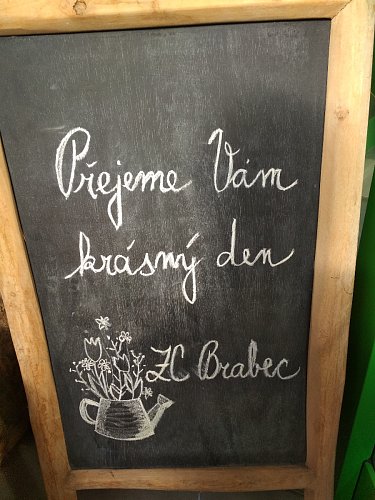 Přejeme Vám
krásný den
ZC Brabec